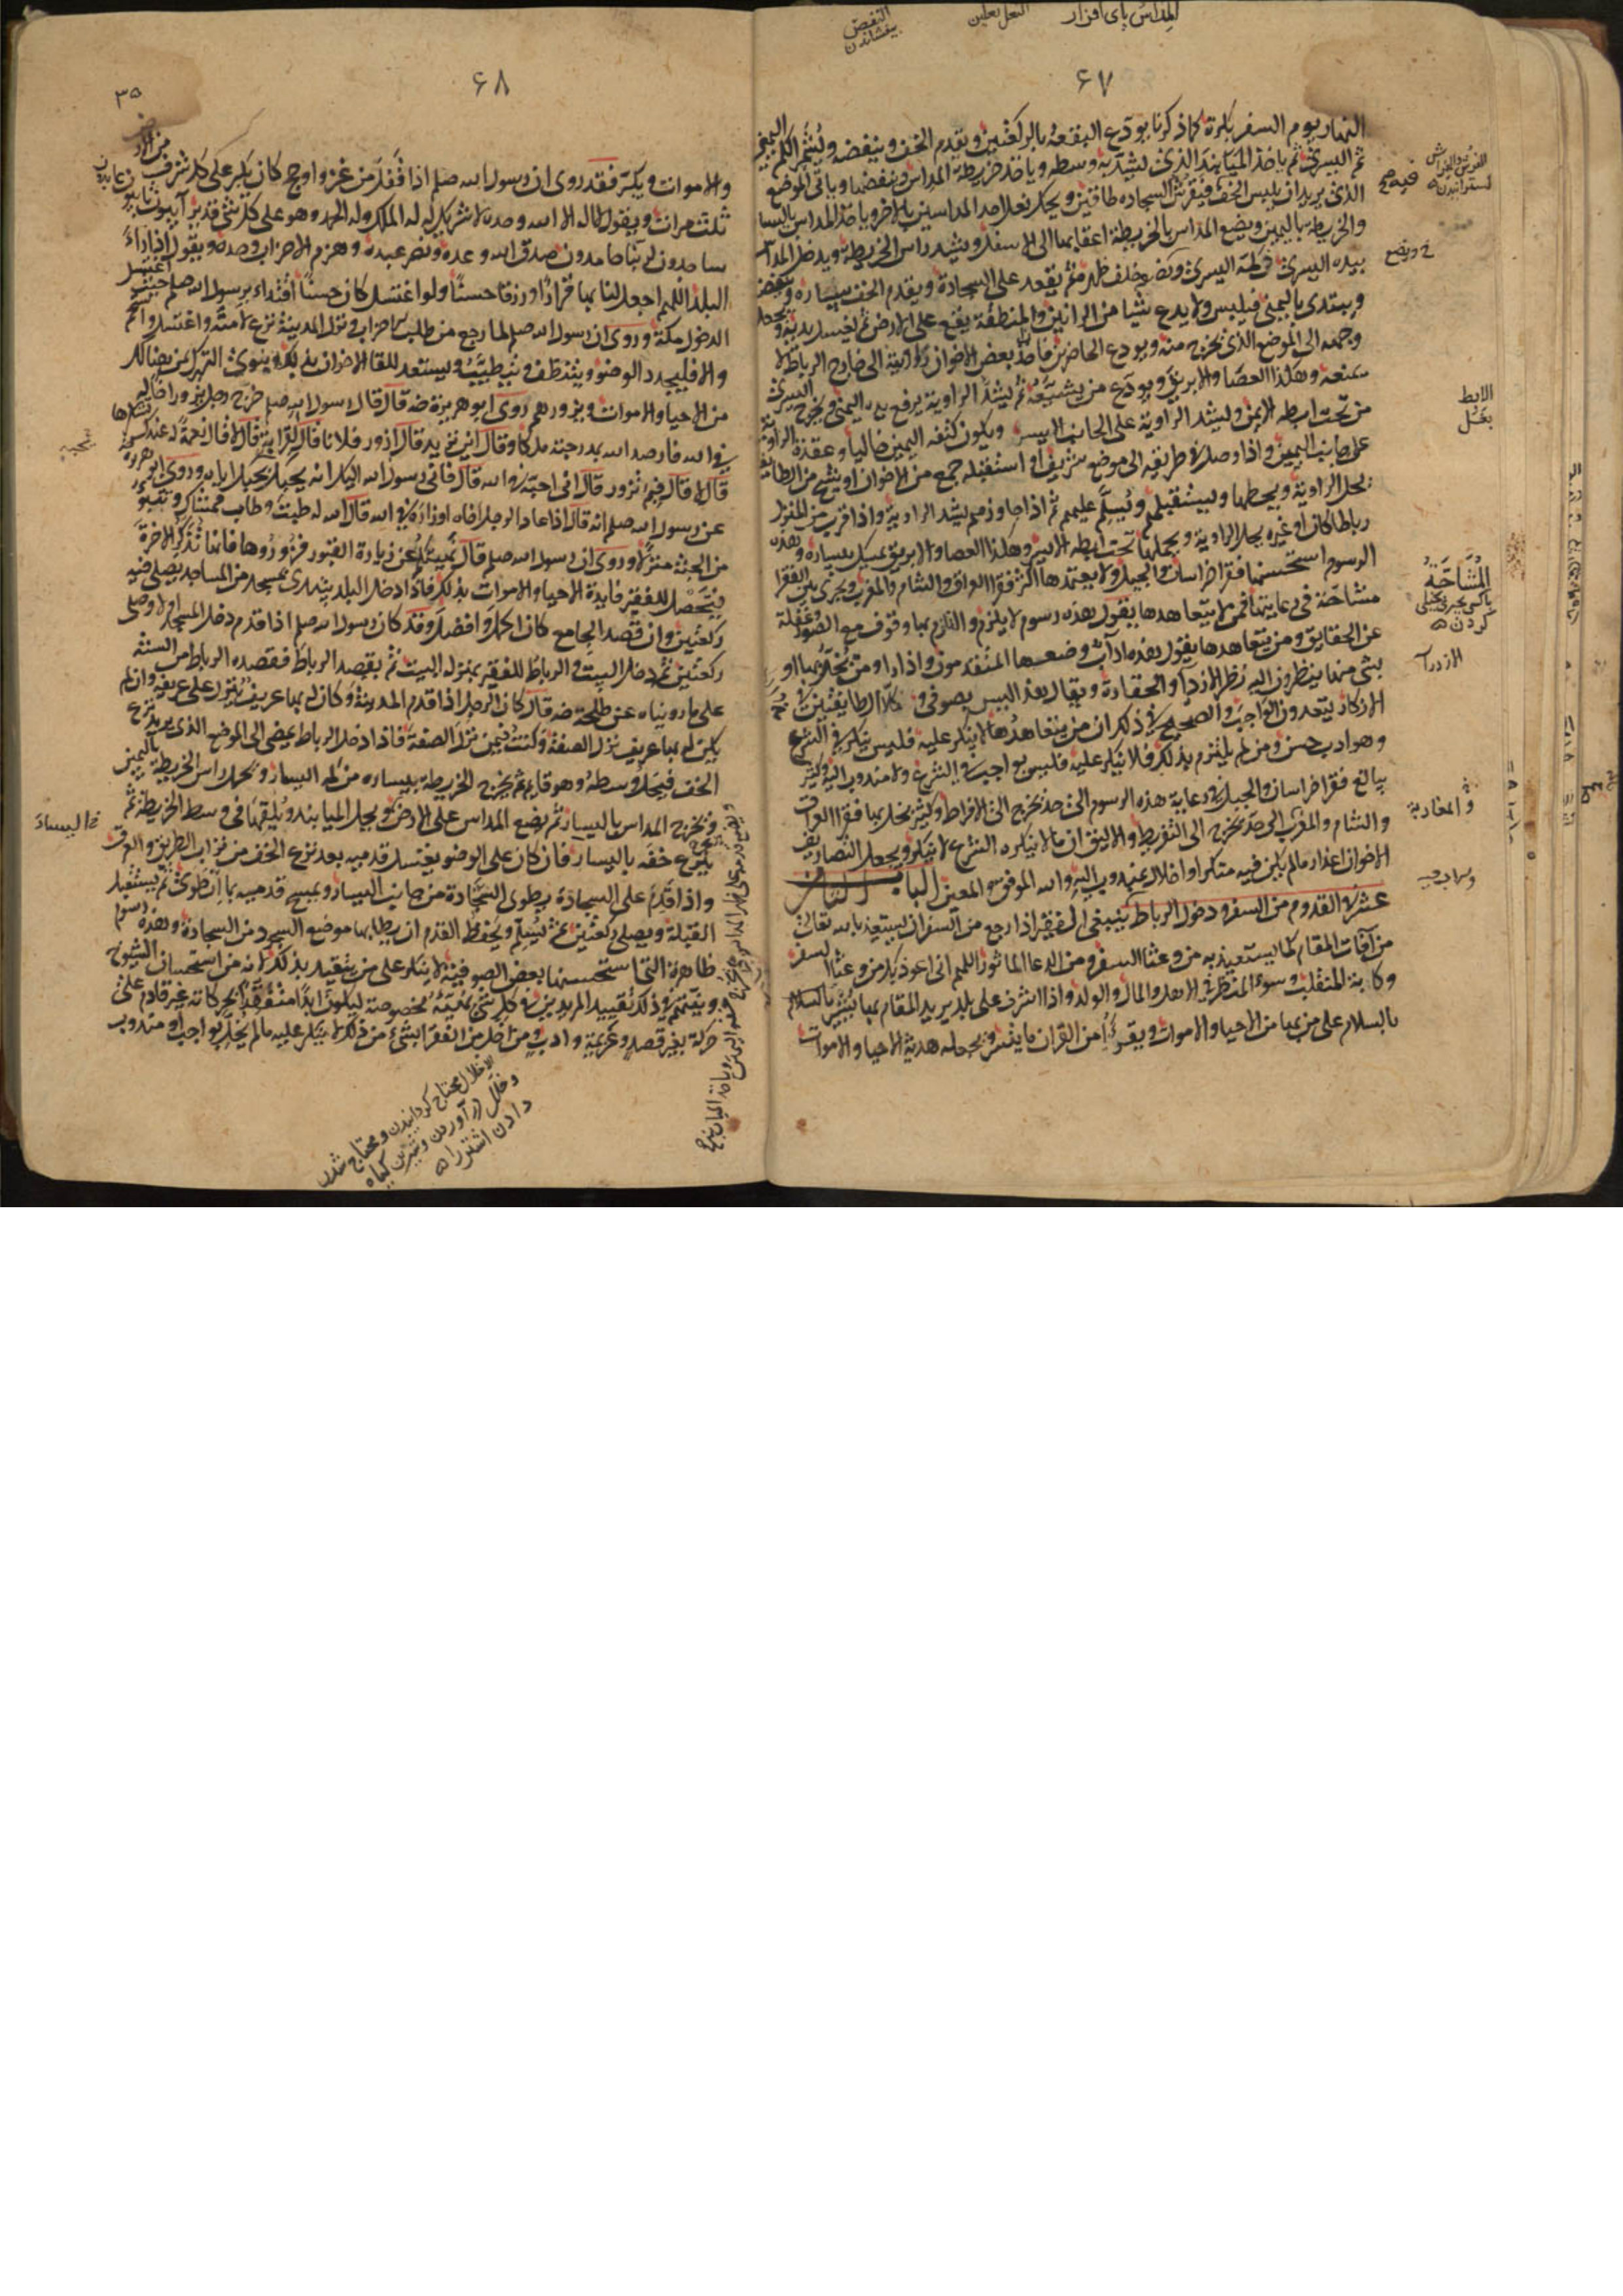 المداس پای افزار
النعل نعلین
النفض
بیفشاندن
۶۷
النهار يوم السفر بكرة كما ذكرنا يودع البقعة بالركعتين ويقدم الخف وينفضه ويشمر الكم اليمنى
ثم اليسرى ثم ياخذ الميابند الذى يشد به وسطه وياخذ خريطة المداس وينفضها وياتى الموضع
الذى يريد ان يلبس الخف فيفرش السجاده طاقين ويحك نعل احد المداسين بالاخر وياخذ المداس باليسار
والخريطة باليمين ويضع المداس بالخريطة اعقابها الى الاسفل ويشد راس الخريطة ويدخل المداس
بيده اليسرى فى كمه اليسرى ويضع خلف ظهره ثم يقعد على السجادة ويقدم الخف بيساره وينفض
ويبتدى باليمنى فيلبس ولا يدع شيا من الرانين والمنطقة يقع على الارض ثم يغسل يديه ويجعل
وجهه الى الموضع الذى يخرج منه ويودع الحاضرين فان اخذ بعض الاخوان راويته الى خارج الرباط لا
يمنعه وهكذا العصا والابريق ويودع من يشيعه ثم يشد الراوية يرفع يده اليمنى ويخرج اليسرى
من تحت ابطه الايمن ويشد الراوية على الجانب الايسر ويكون كتفه اليمين خاليا وعقدة الراوية
على جانب اليمين واذا وصل فى طريقه الى موضع شريف او استقبله جمع من الاخوان او شيخ من الطايفة
يحل الراوية ويحطها ويستقبلهم ويسلم عليهم ثم اذا جاوزهم يشد الراوية واذا قرب من المنزل
رباطا كان او غيره يحل الراوية ويحملها تحت ابطه الايسر وهكذا العصا والابريق يمسك بيساره وهذه
الرسوم استحسنها فقرا خراسان والجبل ولا يعتمدها اكثر فقرا العراق والشام والمغرب ويجرى بين الفقرا
مشاحنة فى رعايتها فمن لا يتعاهدها يقول هذه رسوم لا يلزم والتزام بها وقوف مع الصور وغفلة
عن الحقايق ومن يتعاهدها يقول هذه اداب وضعها المتقدمون واذا راوا من يخل بها او
بشى منها ينظرون اليه نظر الازدرا والحقارة ويقال هذا ليس بصوفى وكلا الطايفتين فى
الانكار يتعدون الواجب والصحيح فى ذلك ان من يتعاهدها لا ينكر عليه فليس بمنكر فى الشرع
وهو ادب حسن ومن لم يلتزم بذلك فلا ينكر عليه فليس بواجب فى الشرع ولا مندوب اليه وكثير
يبالغ فقرا خراسان والجبل فى رعاية هذه الرسوم الى حد يخرج الى الافراط وكثير يخل بها فقرا العراق
والشام والمغرب الى حد يخرج الى التفريط والاليق ان ما لا ينكره الشرع لا ينكر ويجعل لتصاريف
الاخوان اعذار ما لم يكن فيه منكر او اخلال بمندوب اليه والله الموفق والمعين الباب الثامن
عشر فى القدوم من السفر ودخول الرباط ينبغى للفقير اذا رجع من السفر ان يستعيذ بالله تعالى
من آفات المقام كما يستعيذ به من وعثا السفر ومن الدعا الماثور اللهم انى اعوذ بك من وعثا السفر
وكابة المنقلب وسوء المنظر فى الاهل والمال والولد واذا اشرف على بلد يريد المقام بها يشير بالسلام
بالسلام على من بها من الاحيا والاموات ويقرأ من القران ما تيسر ويجعله هدية للاحيا والاموات
الابط
بغل
المشاحة
با کسی بخیلی
کردن
الازدرآ
و المغاربة
۶۸
۳۵
والاموات ويكبر فقد روى ان رسول الله صلم اذا قفل من غزو او حج كان يكبر على كل شرف من الارض
ثلث مرات ويقول لا اله الا الله وحده لا شريك له له الملك وله الحمد وهو على كل شى قدير آيبون تايبون عابدون
ساجدون لربنا حامدون صدق الله وعده ونصر عبده وهزم الاحزاب وحده ويقول اذا راى
البلد اللهم اجعل لنا بها قرارا ورزقا حسنا ولو اغتسل كان حسنا اقتداء برسول الله صلم حيث اغتسل
لدخول مكة وروى ان رسول الله صلم لما رجع من طلب الاحزاب ونزل المدينة نزع لامته واغتسل واستحم
والا فليجدد الوضو ويتنظف ويتطيب ويستعد للقا الاخوان بذلك وينوى التبرك بمن هنالك
من الاحيا والاموات ويزورهم روى ابو هريرة ضه قال قال رسول الله صلم خرج رجل يزور اخا له
فى الله فارصد الله بمدرجته ملكا وقال اين تريد قال ازور فلانا قال لقرابة قال لا قال لنعمة له عندك تشكرها
قال لا قال فبم تزوره قال انى احبه فى الله قال فانى رسول الله اليك انه يحبك بحبك اياه وروى ابو هريرة
عن رسول الله صلم انه قال اذا عاد الرجل اخاه او زاره فى الله قال الله له طبت وطاب ممشاك وتتبوء
من الجنة منزلا وروى ان رسول الله صلم قال نهيتكم عن زيارة القبور فزوروها فانها تذكر الاخرة
فيتحصل للفقير فايدة الاحيا والاموات بذلك فاذا دخل البلد يبتدى بمسجد من المساجد يصلى فيه
ركعتين وان قصد الجامع كان اكمل وافضل وقد كان رسول الله صلم اذا قدم دخل المسجد اولا وصلى
ركعتين ثم دخل البيت والرباط للفقير بمنزلة البيت ثم يقصد الرباط فقصده الرباط من السنة
على ما رويناه عن طلحة ضه قال كان الرجل اذا قدم المدينة وكان له بها عريف ينزل على عريفه وان لم
يكن له بها عريف نزل الصفة وكنت فيمن نزل الصفة فاذا دخل الرباط يمضى الى الموضع الذى يريد نزع
الخف فيحل وسطه وهو قايم ثم يخرج الخريطة بيساره من كمه اليسار ويحل راس الخريطة باليمين
ويخرج المداس باليسار ثم يضع المداس على الارض ويحل الميابند ويلقيها فى وسط الخريطة ثم
ينزع خفه باليسار فان كان على الوضو يغسل قدميه بعد نزع الخف من تراب الطريق والعرق
واذا قدم على السجادة يطوى السجادة من جانب اليسار ويمسح قدميه بما انطوى ثم يستقبل
القبلة ويصلى ركعتين ثم يسلم ويحفظ القدم ان يطا بها موضع السجود من السجادة وهذه رسوم
ظاهرة التى استحسنها بعض الصوفية لا ينكر على من يتقيد بذلك لانه من استحسان الشيوخ
ونيتهم فى ذلك تقييد المريدين فى كل شى بهيئة مخصوصة ليكون ابدا متفقدا لحركاته غير قادم على
حركة بغير قصد وعزيمة وادب ومن اخل من الفقرا بشى من ذلك لا ينكر عليه ما لم يخل بواجب او مندوب
اليسار
الاخلال محتاج کردانیدن و محتاج شدن
و خلل در آوردن و شیرین کیاه
دادن اشتر را